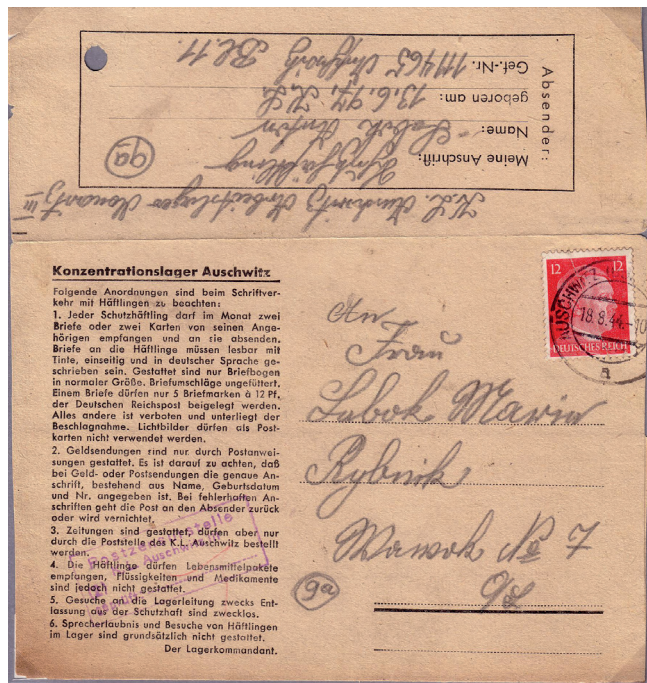 Absender:
Meine Anschrift:
Name: Lubok Anton
geboren am: 13.6.97, K.L.
Gef.-Nr. 111465 Auschwitz Bl. 11
9a
K.L. Auschwitz Arbeitslager Monowitz III
Konzentrationslager Auschwitz
Folgende Anordnungen sind beim Schriftver-
kehr mit Häftlingen zu beachten:
1. Jeder Schutzhäftling darf im Monat zwei
Briefe oder zwei Karten von seinen Ange-
hörigen empfangen und an sie absenden.
Briefe an die Häftlinge müssen lesbar mit
Tinte, einseitig und in deutscher Sprache ge-
schrieben sein. Gestattet sind nur Briefbogen
in normaler Größe. Briefumschläge ungefüttert.
Einem Briefe dürfen nur 5 Briefmarken à 12 Pf.
der Deutschen Reichspost beigelegt werden.
Alles andere ist verboten und unterliegt der
Beschlagnahme. Lichtbilder dürfen als Post-
karten nicht verwendet werden.
2. Geldsendungen sind nur durch Postanwei-
sungen gestattet. Es ist darauf zu achten, daß
bei Geld- oder Postsendungen die genaue An-
schrift, bestehend aus Name, Geburtsdatum
und Nr. angegeben ist. Bei fehlerhaften An-
schriften geht die Post an den Absender zurück
oder wird vernichtet.
3. Zeitungen sind gestattet, dürfen aber nur
durch die Poststelle des K.L. Auschwitz bestellt
werden.
4. Die Häftlinge dürfen Lebensmittelpakete
empfangen, Flüssigkeiten und Medikamente
sind jedoch nicht gestattet.
5. Gesuche an die Lagerleitung zwecks Ent-
lassung aus der Schutzhaft sind zwecklos.
6. Sprecherlaubnis und Besuche von Häftlingen
im Lager sind grundsätzlich nicht gestattet.
Der Lagerkommandant.
Postzensurstelle
12 12
DEUTSCHES REICH
AUSCHWITZ
18.8.44.-10
a
An
Frau
Lubok Marie
Rybnik
Wawok No 7
O/S
9a